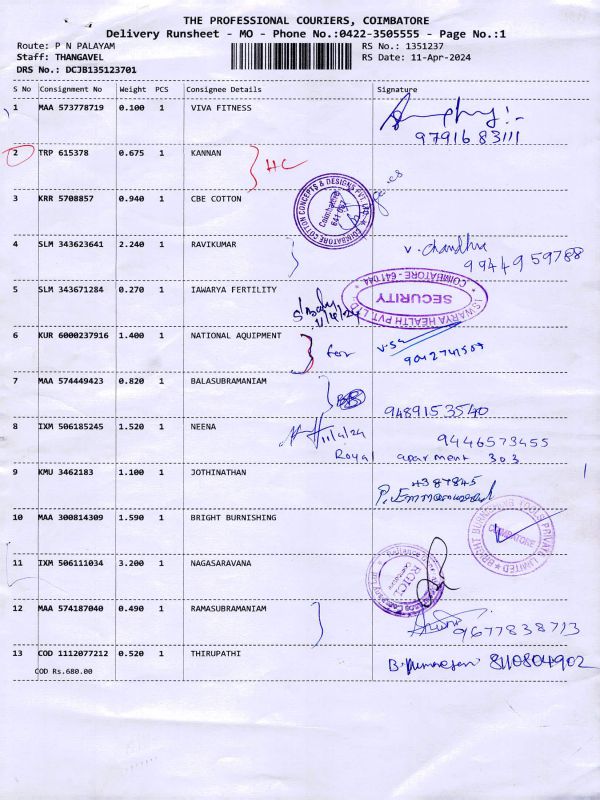 THE PROFESSIONAL COURIERS, COIMBATORE
Delivery Runsheet - MO - Phone No.:0422-3505555 - Page No.:1
Route: P N PALAYAM RS No.: 1351237
Staff: THANGAVEL RS Date: 11-Apr-2024
DRS No.: DCJB135123701
S No Consignment No Weight PCS Consignee Details Signature
1 MAA 573778719 0.100 1 VIVA FITNESS
9791683111
2 TRP 615378 0.675 1 KANNAN HC
3 KRR 5708857 0.940 1 CBE COTTON
COIMBATORE COTTON CONCEPTS & DESIGNS PVT. LTD.
Coimbatore
641 037
4 SLM 343623641 2.240 1 RAVIKUMAR V. Chandra
9944959788
5 SLM 343671284 0.270 1 IAWARYA FERTILITY
ISWARYA HEALTH PVT. LTD
SECURITY
COIMBATORE - 641 044
6 KUR 6000237916 1.400 1 NATIONAL AQUIPMENT for
9042741507
7 MAA 574449423 0.820 1 BALASUBRAMANIAM
9489153540
8 IXM 506185245 1.520 1 NEENA 11/4/24 9446573455
Royal aparment 303
9 KMU 3462183 1.100 1 JOTHINATHAN 4387845
10 MAA 300814309 1.590 1 BRIGHT BURNISHING
BRIGHT BURNISHING TOOLS PRIVATE LIMITED
COIMBATORE
11 IXM 506111034 3.200 1 NAGASARAVANA
RGICL
12 MAA 574187040 0.490 1 RAMASUBRAMANIAM
9677838713
13 COD 1112077212 0.520 1 THIRUPATHI 8110804902
COD Rs.680.00